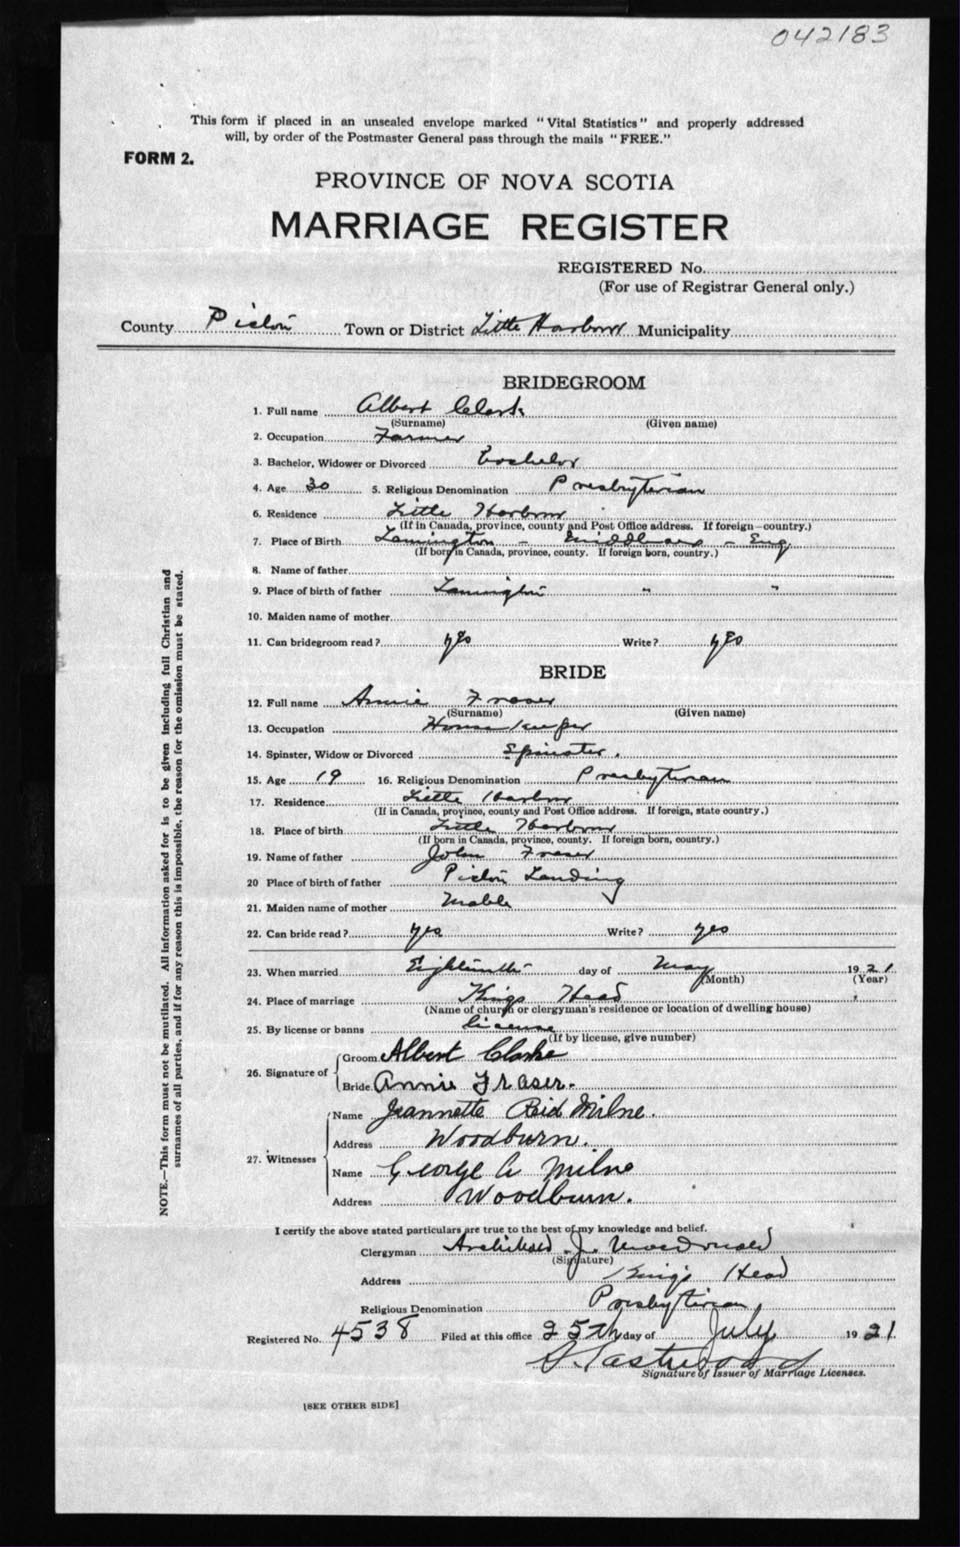 042183
This form if placed in an unsealed envelope marked "Vital Statistics" and properly addressed
will, by order of the Postmaster General pass through the mails "FREE."
FORM 2.
PROVINCE OF NOVA SCOTIA
MARRIAGE REGISTER
REGISTERED No.
(For use of Registrar General only.)
County Pictou Town or District Little Harbour Municipality
BRIDEGROOM
1. Full name Albert Clark
(Surname) (Given name)
2. Occupation Farmer
3. Bachelor, Widower or Divorced Bachelor
4. Age 30 5. Religious Denomination Presbyterian
6. Residence Little Harbour
(If in Canada, province, county and Post Office address. If foreign—country.)
7. Place of Birth - - Eng
(If born in Canada, province, county. If foreign born, country.)
8. Name of father
9. Place of birth of father " "
10. Maiden name of mother
11. Can bridegroom read? yes Write? yes
BRIDE
12. Full name Annie Fraser
(Surname) (Given name)
13. Occupation House keeper
14. Spinster, Widow or Divorced Spinster.
15. Age 19 16. Religious Denomination Presbyterian
17. Residence Little Harbour
(If in Canada, province, county and Post Office address. If foreign, state country.)
18. Place of birth Little Harbour
(If born in Canada, province, county. If foreign born, country.)
19. Name of father John Fraser
20 Place of birth of father Pictou Landing
21. Maiden name of mother Mable
22. Can bride read? yes Write? yes
23. When married Eighteenth day of May 1921
(Month) (Year)
24. Place of marriage Kings Head
(Name of church or clergyman's residence or location of dwelling house)
25. By license or banns license
(If by license, give number)
26. Signature of Groom Albert Clarke
Bride Annie Fraser.
27. Witnesses Name Jeannette Reid Milne.
Address Woodburn.
Name George A Milne
Address Woodburn.
I certify the above stated particulars are true to the best of my knowledge and belief.
Clergyman Archibald J. MacDonald
(Signature)
Address King's Head
Religious Denomination Presbyterian
Registered No. 4538 Filed at this office 25th day of July 1921
Signature of Issuer of Marriage Licenses.
[SEE OTHER SIDE]
NOTE.—This form must not be mutilated. All information asked for is to be given including full Christian and
surnames of all parties, and if for any reason this is impossible, the reason for the omission must be stated.